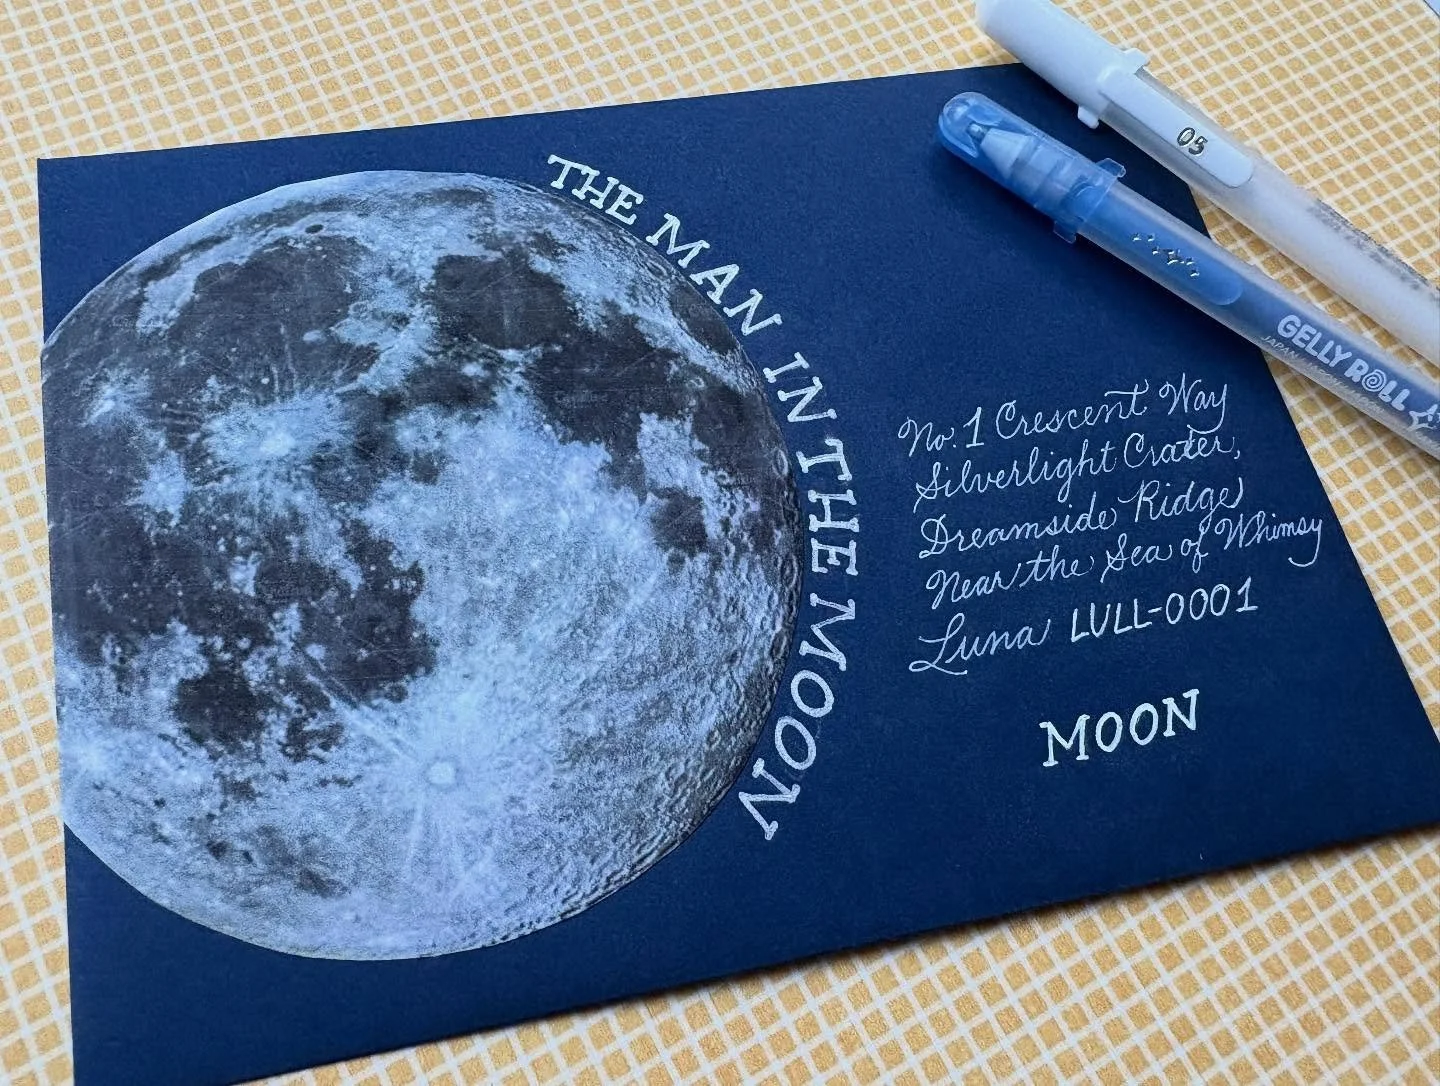 THE MAN IN THE MOON
No. 1 Crescent Way
Silverlight Crater,
Dreamside Ridge
Near the Sea of Whimsy
Luna LULL-0001
MOON
05
GELLY ROLL